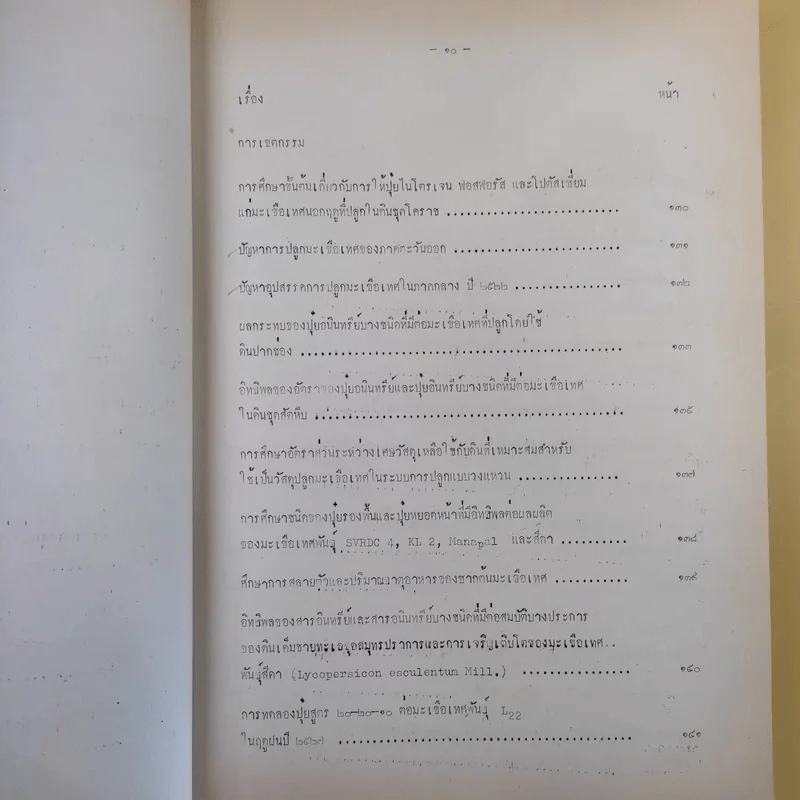 - ๑๐ -
เรื่อง หน้า
การเขตกรรม
การศึกษาขั้นต้นเกี่ยวกับการให้ปุ๋ยไนโตรเจน ฟอสฟอรัส และโปตัสเซี่ยม
แก่มะเขือเทศนอกฤดูที่ปลูกในดินชุดโคราช ......................... ๑๓๐
ปัญหาการปลูกมะเขือเทศของภาคตะวันออก ........................ ๑๓๑
ปัญหาอุปสรรคการปลูกมะเขือเทศในภาคกลาง ปี ๒๕๒๒ ................ ๑๓๒
ผลกระทบของปุ๋ยอนินทรีย์บางชนิดที่มีต่อมะเขือเทศที่ปลูกโดยใช้
ดินปากช่อง .............................................. ๑๓๓
อิทธิพลของอัตราของปุ๋ยอนินทรีย์และปุ๋ยอินทรีย์บางชนิดที่มีต่อมะเขือเทศ
ในดินชุดสัตหีบ ............................................ ๑๓๕
การศึกษาอัตราส่วนระหว่างเศษวัสดุเหลือใช้กับดินที่เหมาะสมสำหรับ
ใช้เป็นวัสดุปลูกมะเขือเทศในระบบการปลูกแบบวงแหวน ............... ๑๓๗
การศึกษาชนิดของปุ๋ยรองพื้นและปุ๋ยหยอดหน้าที่มีอิทธิพลต่อผลผลิต
ของมะเขือเทศพันธุ์ SVRDC 4, KL 2, Manapal และสีดา .......... ๑๓๘
ศึกษาการสลายตัวและปริมาณธาตุอาหารของซากต้นมะเขือเทศ ........... ๑๓๙
อิทธิพลของสารอินทรีย์และสารอนินทรีย์บางชนิดที่มีต่อสมบัติบางประการ
ของดินเค็มชายทะเลจุอสมุทรปราการและการเจริญเติบโตของมะเขือเทศ..
พันธุ์สีดา (Lycopersicon esculentum Mill.) ................ ๑๔๐
การทดลองปุ๋ยสูตร ๒๐-๒๐-๑๐ ต่อมะเขือเทศพันธุ์ L22
ในฤดูฝนปี ๒๕๒๗ .......................................... ๑๔๑